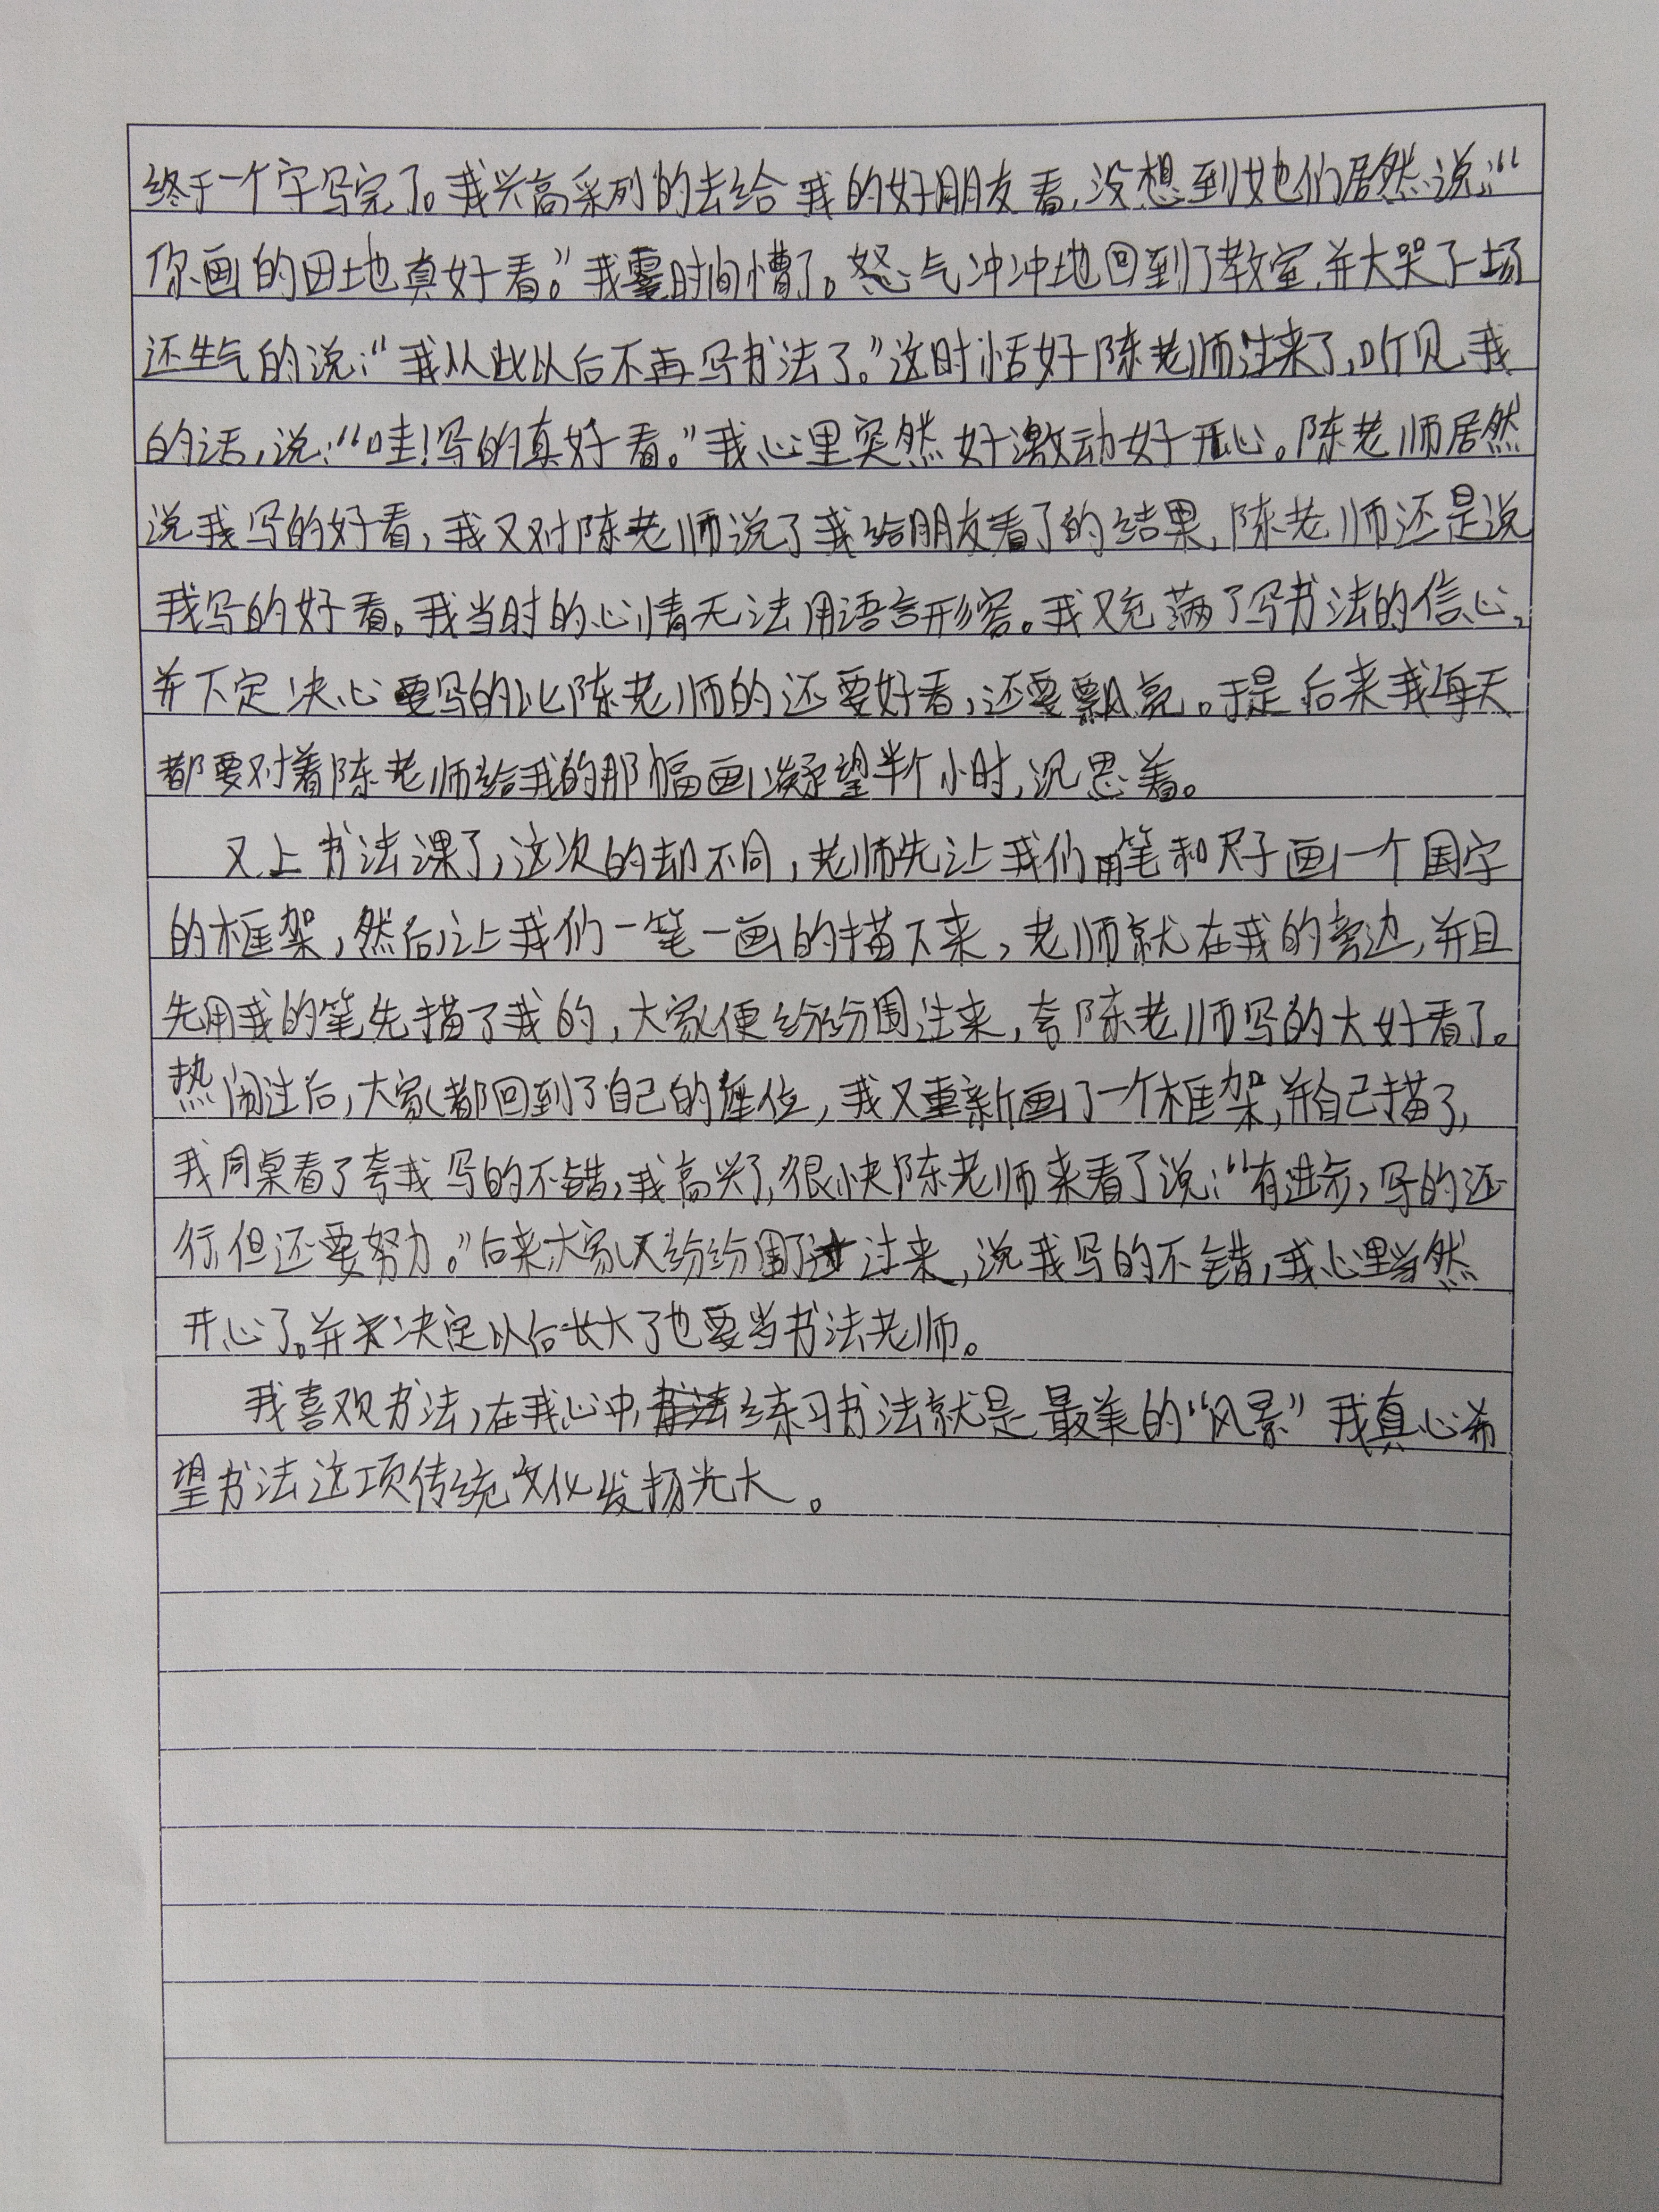 终于一个字写完了。我兴高采列的去给我的好朋友看,没想到她们居然说:“
你画的田地真好看。”我霎时间懵了。怒气冲冲地回到了教室,并大哭了一场
还生气的说:“我从此以后不再写书法了。”这时恬好陈老师过来了,听见我
的话,说:“哇!写的真好看。”我心里突然好激动好开心。陈老师居然
说我写的好看,我又对陈老师说了我给朋友看了的结果,陈老师还是说
我写的好看。我当时的心情无法用语言形容。我又充满了写书法的信心,
并下定决心要写的比陈老师的还要好看,还要飘亮。于是后来我每天
都要对着陈老师给我的那幅画凝望半个小时,沉思着。
又上书法课了,这次的却不同,老师先让我们用笔和尺子画一个国字
的框架,然后让我们一笔一画的描下来,老师就在我的旁边,并且
先用我的笔先描了我的,大家便纷纷围过来,夸陈老师写的太好看了。
热闹过后,大家都回到了自己的座位,我又重新画了一个框架,并自己描了,
我同桌看了夸我写的不错,我高兴了,很快陈老师来看了说:“有进步,写的还
行但还要努力。”后来大家又纷纷围了过来,说我写的不错,我心里当然
开心了。并决定以后长大了也要当书法老师。
我喜欢书法,在我心中,练习书法就是最美的“风景”我真心希
望书法这项传统文化发扬光大。